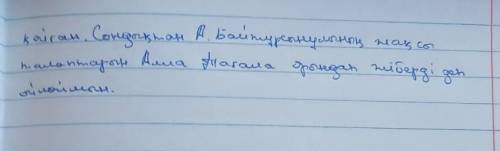 қайған. Сондықтан А. Байтұрсынұлының жақсы
талаптарын Алла Тағала орындап жіберді деп
ойлаймын.